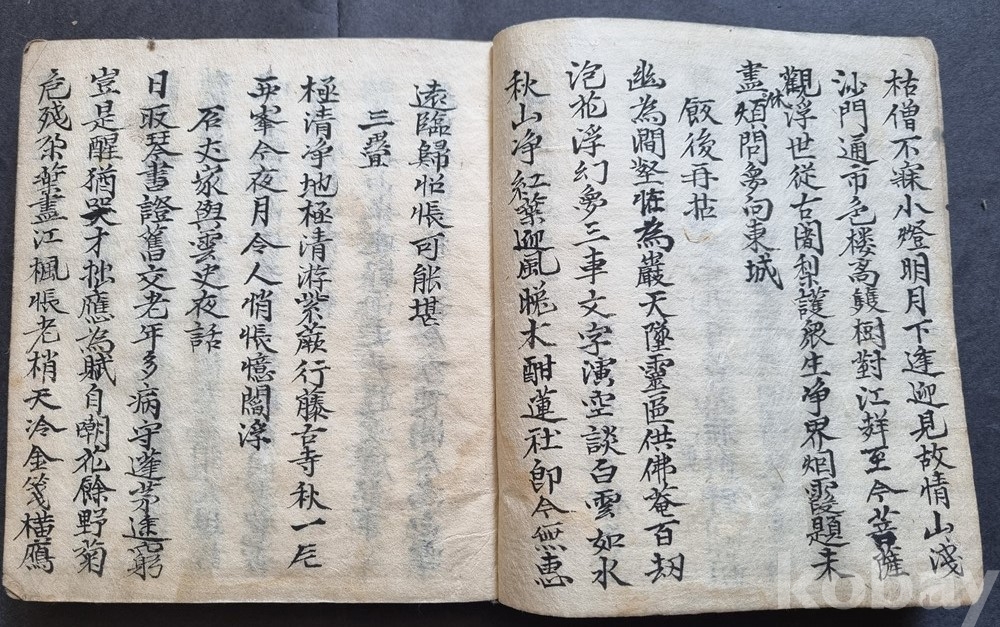 枯僧不寐小燈明月下逢迎見故情山淺
沙門通市色楼高雙樹對江鮮至今菩薩
觀浮世從古闍梨護衆生净界烟霞題未
盡煩問象向東城
休
飯後再拈
幽為澗壑怪為巖天墜靈區供佛菴百劫
泡花浮幻夢三車文字演空談白雲如水
秋山净紅葉迎風晚木酣蓮社卽今無惠
遠臨歸怊悵可能堪
三疊
極清净地極清游紫蕨行藤古寺秋一片
西峯今夜月令人悄悵憶閻浮
石丈家與雲史夜話
日取琴書證舊交老年多病守蓬茅途窮
豈是醒猶哭才拙應為賦自嘲花餘野菊
危殘朶葉盡江楓悵老梢天冷金笺橫鴈
kobay